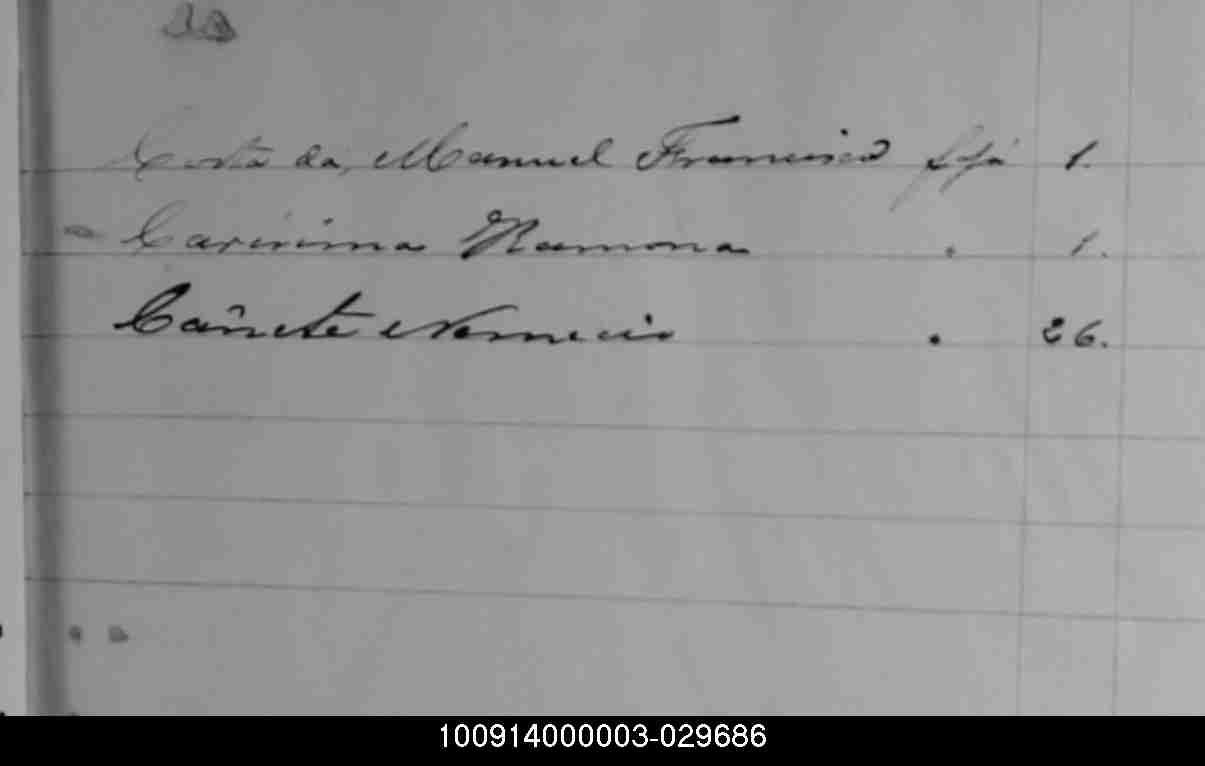 Costa da, Manuel Francisco foja 1.
Ramona . 1.
Cañete Nemecio . 26.
100914000003-029686